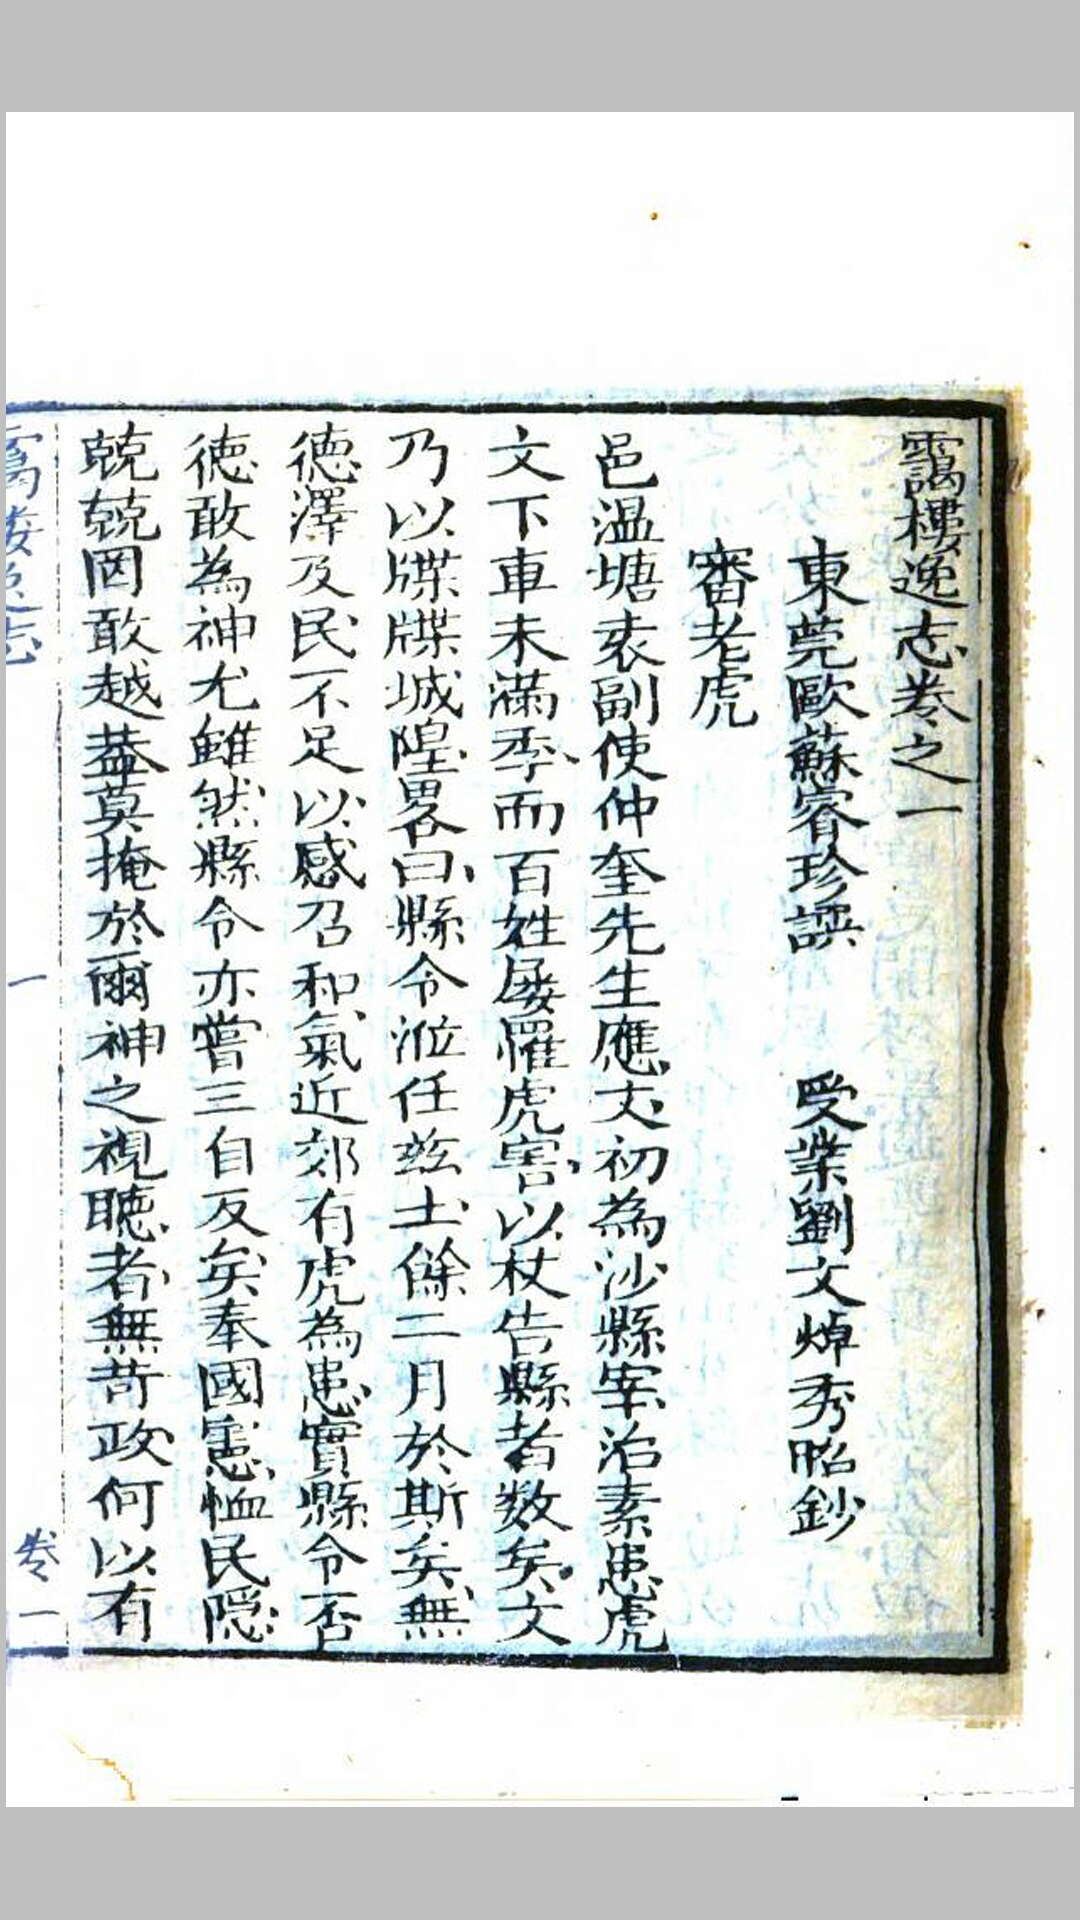 靄樓逸志卷之一
東莞歐蘇睿珍譔 受業劉文焯秀昭鈔
審老虎
邑温塘袁副使仲奎先生應文初為沙縣宰治素患虎
文下車未滿季而百姓屡罹虎害以杖告縣者数矣文
乃以牒牒城隍畧曰縣令涖任兹土餘二月於斯矣無
德澤及民不足以感召和氣近郊有虎為患實縣令否
徳敢為神尤雖然縣令亦嘗三自反矣奉國憲恤民隠
兢兢罔敢越葢莫掩於爾神之視聽者無苛政何以有
靄樓逸志 一 卷一